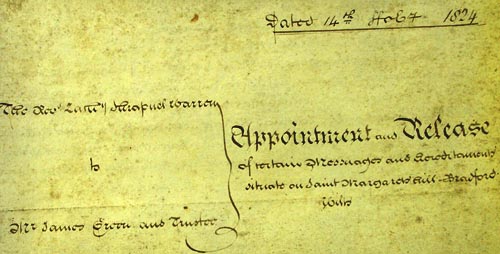 Dated 14th Feby 1824
The Revd Zachy Shrapnel Warren
to
Mr James Green and Trustee
Appointment and Release
of certain Messuages and Hereditaments
situate on Saint Margarets Hill Bradford
Wilts